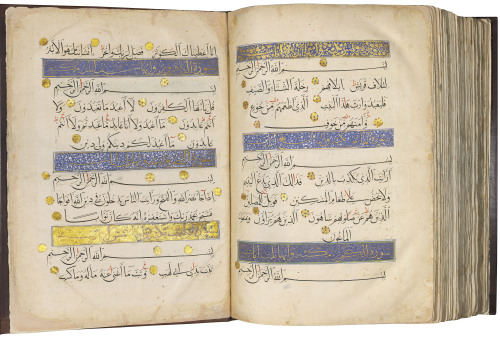 بسم الله الرحمن الرحيم
لايلاف قريش ايلافهم رحلة الشتاء والصيف
فليعبدوا رب هذا البيت الذي اطعمهم من جوع
وآمنهم من خوف
بسم الله الرحمن الرحيم
ارايت الذي يكذب بالدين فذلك الذي يدع اليتيم
ولا يحض على طعام المسكين فويل للمصلين
الذين هم عن صلوتهم ساهون الذين هم يراؤن ويمنعون
الماعون
سورة الكوثر مكية
بسم الله الرحمن الرحيم
انا اعطيناك الكوثر فصل لربك وانحر ان شانئك هو الابتر
بسم الله الرحمن الرحيم
قل يا ايها الكافرون لا اعبد ما تعبدون ولا
انتم عابدون ما اعبد ولا انا عابد ما عبدتم ولا انتم
عابدون ما اعبد لكم دينكم ولي دين
بسم الله الرحمن الرحيم
اذا جاء نصر الله والفتح ورايت الناس يدخلون في دين الله افواجا
فسبح بحمد ربك واستغفره انه كان توابا
بسم الله الرحمن الرحيم
تبت يدا ابي لهب وتب ما اغنى عنه ماله وما كسب